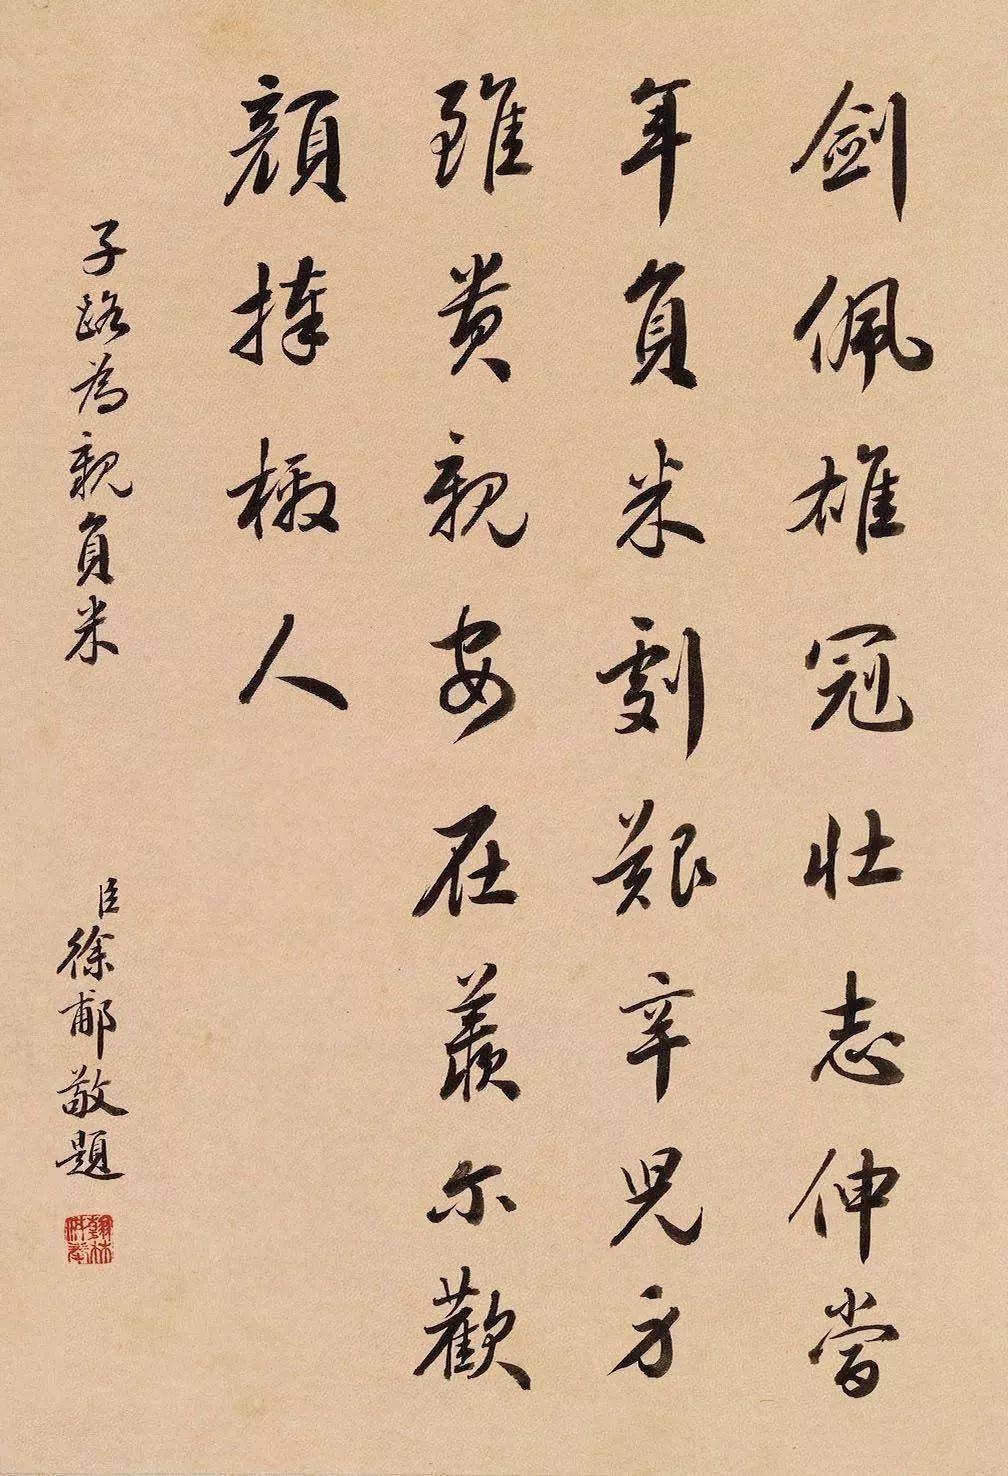 劍佩雄冠壯志伸當
年負米劇艱辛兒身
雖貴親安在羨尔歡
顏捧檄人
子路為親負米
臣徐郙敬題
翰林供奉